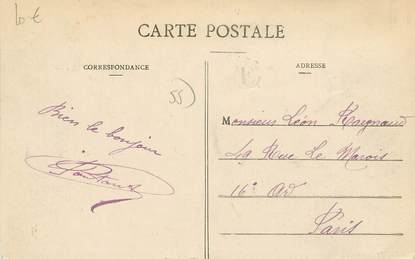 10 €
CARTE POSTALE
CORRESPONDANCE
ADRESSE
55
Bien le bonjour
Monsieur Léon Raynaud
49 Rue Le Marois
16e Ar
Paris